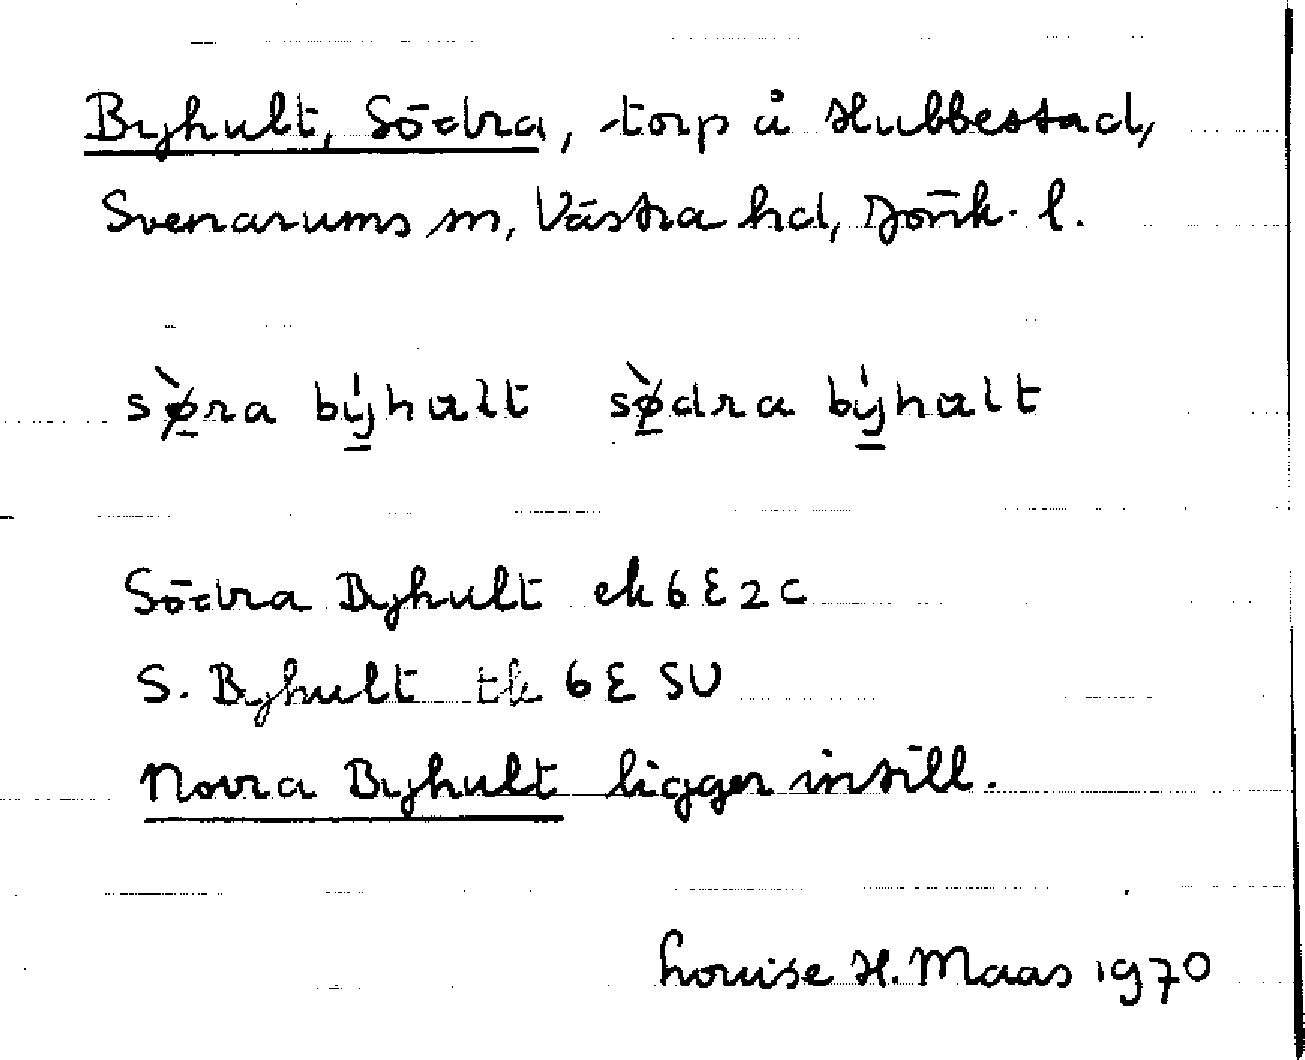 Byhult, Södra, torp å Hubbestad,
Svenarums sn, Västra hd, Jönk. l.
sø̀ra býhalt sø̀dra býhalt
Södra Byhult ek 6E2c
S. Byhult tk 6E SV
Norra Byhult ligger intill.
Louise H. Maas 1970